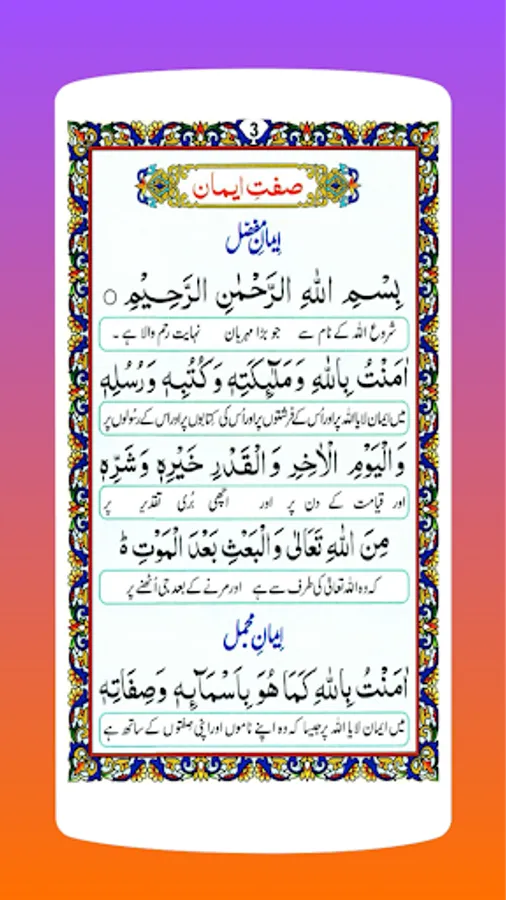 3
صفتِ ایمان
اِیمانِ مفصّل
بِسْمِ اللهِ الرَّحْمٰنِ الرَّحِیْمِ ○
شروع اللہ کے نام سے جو بڑا مہربان نہایت رحم والا ہے ۔
اٰمَنْتُ بِاللهِ وَمَلٰٓئِکَتِهٖ وَکُتُبِهٖ وَرُسُلِهٖ
میں ایمان لایا اللہ پر اور اُس کے فرشتوں پر اور اُس کی کتابوں پر اور اس کے رسولوں پر
وَالْیَوْمِ الْاٰخِرِ وَالْقَدْرِ خَیْرِهٖ وَشَرِّهٖ
اور قیامت کے دن پر اور اچھی بُری تقدیر پر
مِنَ اللهِ تَعَالٰی وَالْبَعْثِ بَعْدَ الْمَوْتِ ؕ
کہ وہ اللہ تعالیٰ کی طرف سے ہے اور مرنے کے بعد جی اُٹھنے پر
اِیمانِ مجمل
اٰمَنْتُ بِاللهِ کَمَا هُوَ بِاَسْمَآئِهٖ وَصِفَاتِهٖ
میں ایمان لایا اللہ پر جیسا کہ وہ اپنے ناموں اور اپنی صفتوں کے ساتھ ہے